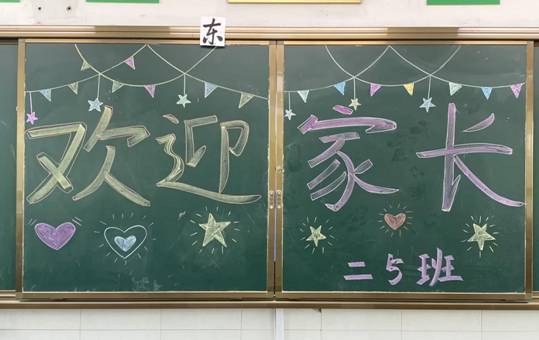 东
欢迎家长
二5班